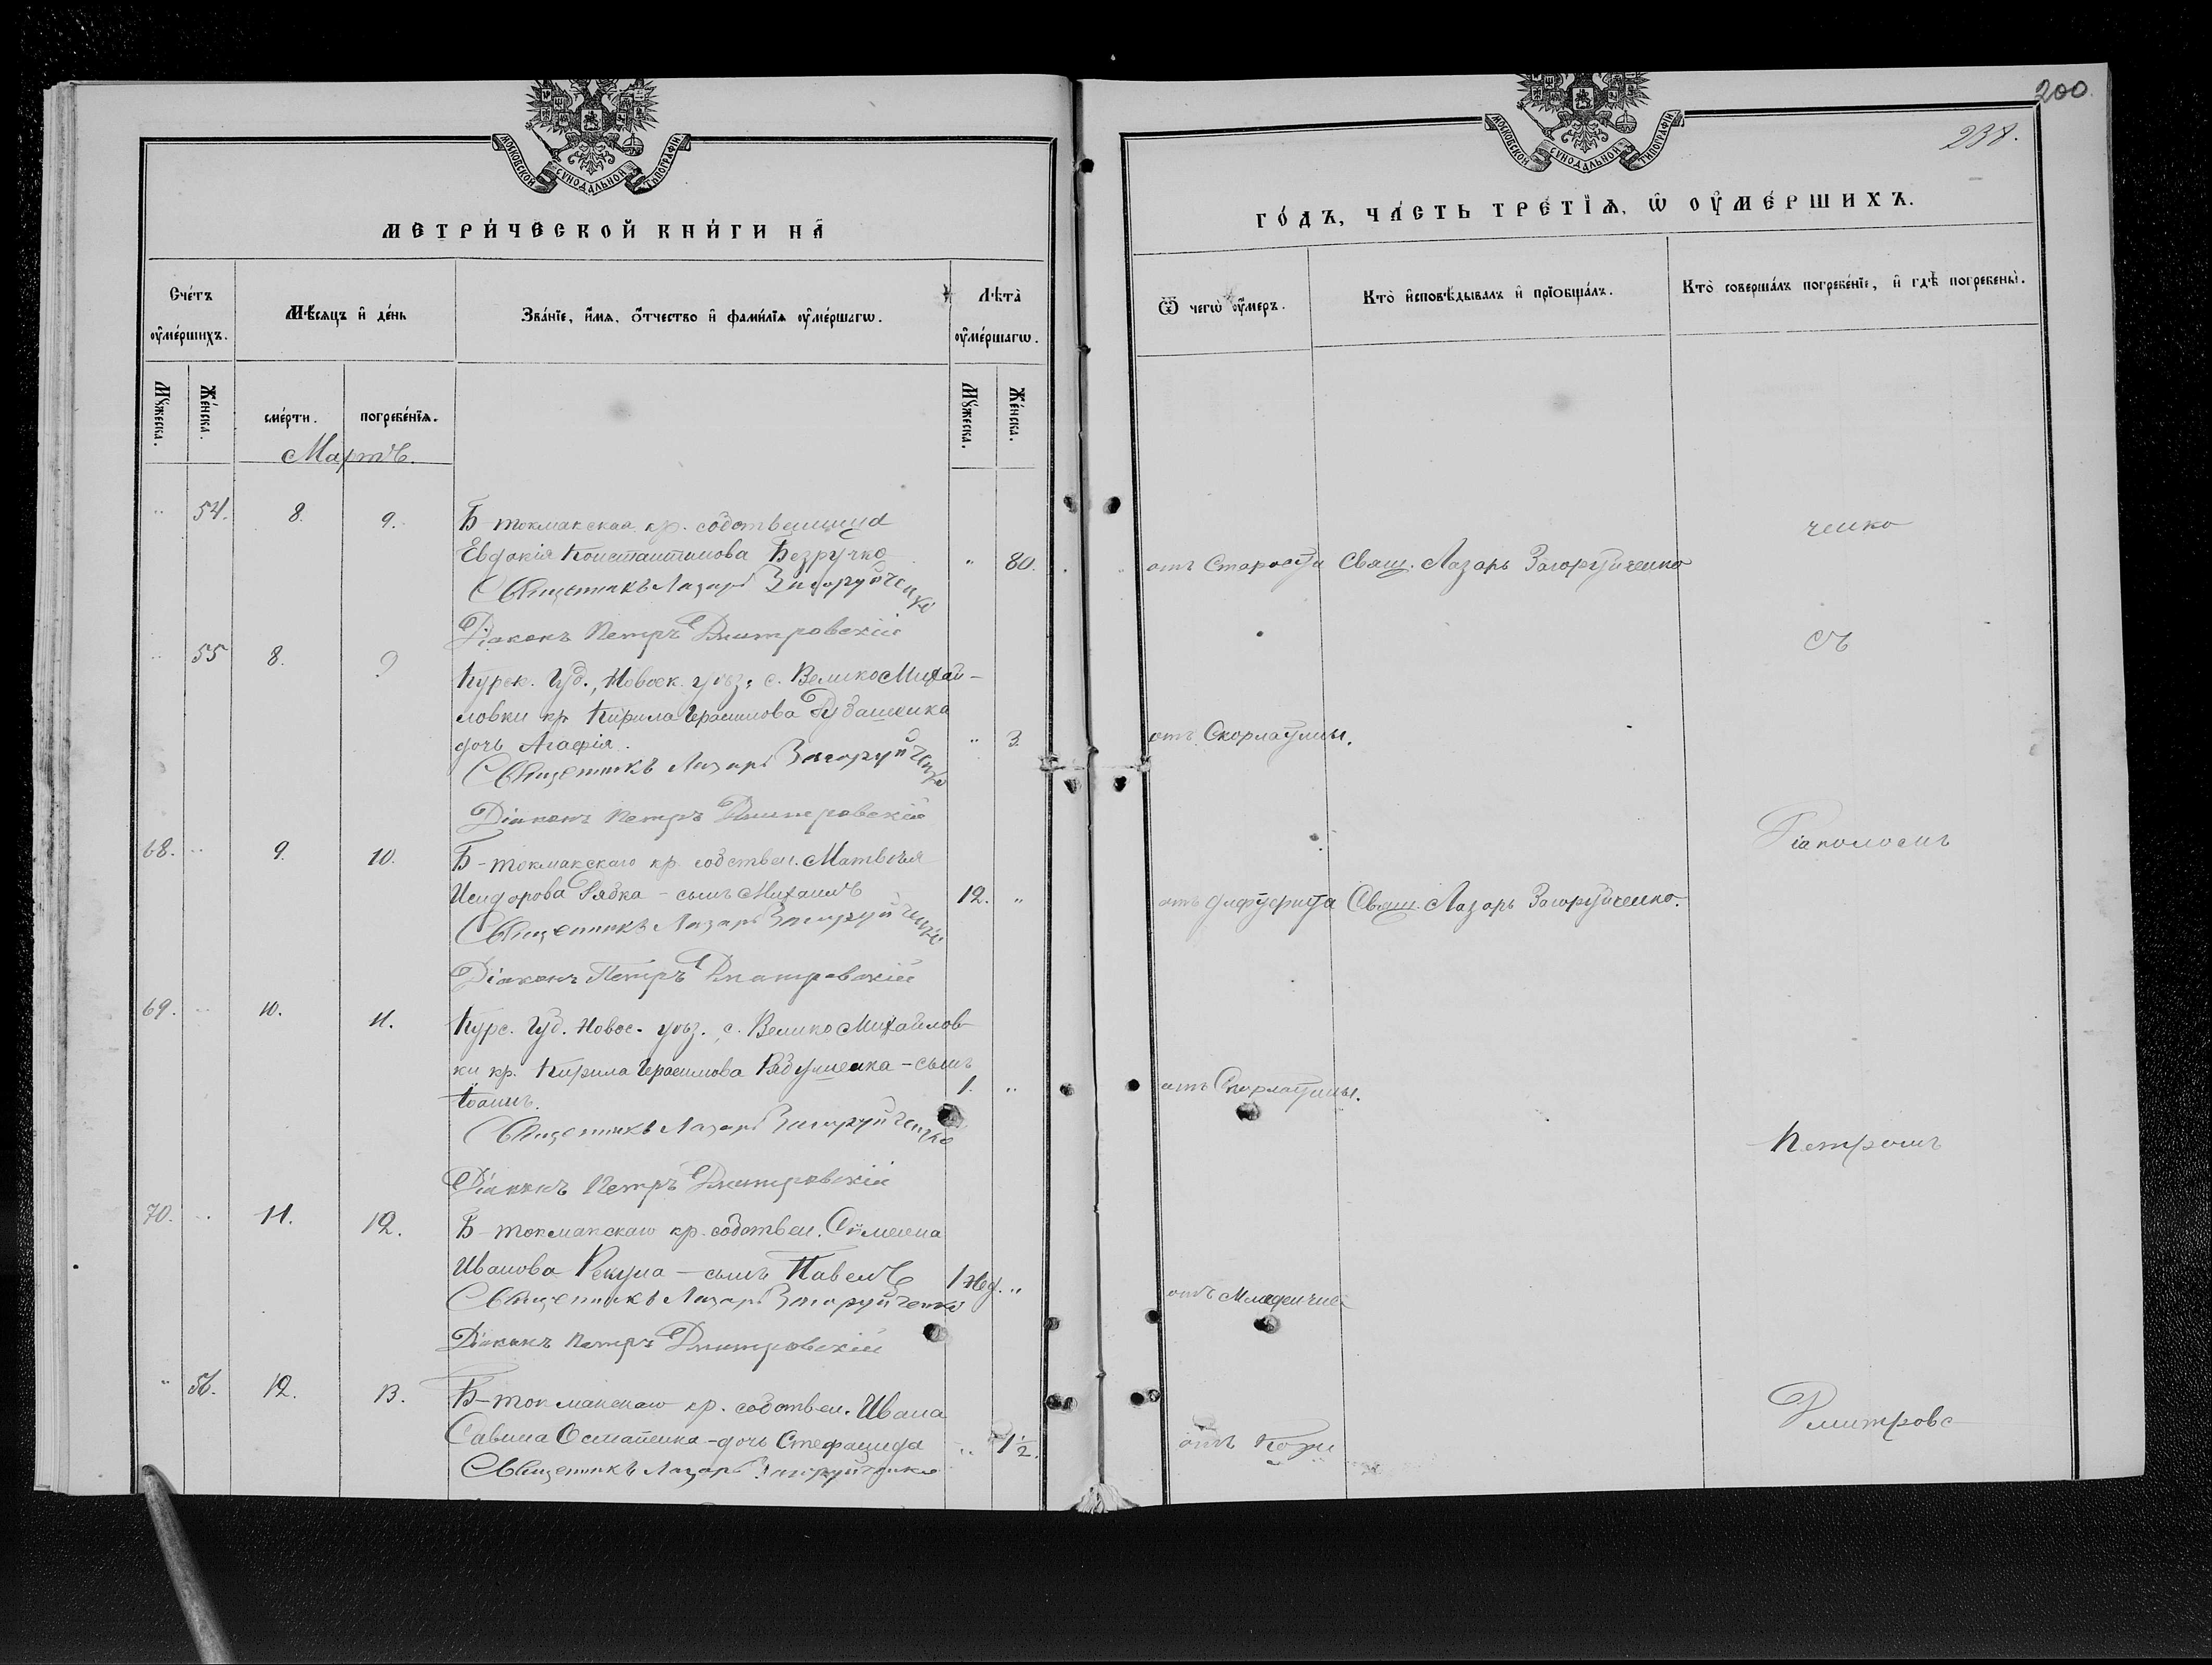 МОСКОВСКОЙ СУНОДАЛЬНОЙ ТИПОГРАФІИ
МЕТРИ́ЧЕСКОЙ КНИ́ГИ НА̀
Сче́тъ ᲂу҆ме́ршихъ.
Мꙋ́жеска.
Же́нска.
Мѣ́сяцъ и҆ де́нь
сме́рти.
погребе́нїѧ.
Зва́нїе, и҆́мѧ, ѻ҆́тчество и҆ фами́лїѧ ᲂу҆ме́ршагѡ.
Лѣта̀ ᲂу҆ме́ршагѡ.
Мꙋ́жеска.
Же́нска.
Мартъ.
" 54. 8. 9. Б-токмакская кр. собственница
Евдокія Константинова Безручко " 80.
Священникъ Лазарь Загоруйченко
Діаконъ Петръ Дмитровскій
" 55 8. 9 Курск. Губ., Новоск. уѣз., с. ВеликоМихай-
ловки кр. Кирила Герасимова
дочь Агафія. " 3.
Священникъ Лазарь Загоруйченко
Діаконъ Петръ Дмитровскій
68. " 9. 10. Б-токмакскаго кр. собствен. Матвѣя
Исидорова Рябка - сынъ Михаилъ 12. "
Священникъ Лазарь Загоруйченко
Діаконъ Петръ Дмитровскій
69. " 10. 11. Курс. Губ. Новос. уѣз., с. ВеликоМихайлов-
ки кр. Кирила Герасимова - сынъ
Іоаннъ. 1. "
Священникъ Лазарь Загоруйченко
Діаконъ Петръ Дмитровскій
70. " 11. 12. Б-токмакскаго кр. собствен. Сѵмеона
Иванова - сынъ Павелъ 1 нед. "
Священникъ Лазарь Загоруйченко
Діаконъ Петръ Дмитровскій
" 56. 12. 13. Б-токмакскаго кр. собствен. Ивана
Савина - дочь Стефанида " 1½.
Священникъ Лазарь Загоруйченко
200.
238.
МОСКОВСКОЙ СУНОДАЛЬНОЙ ТИПОГРАФІИ
ГО́ДЪ, ЧА́СТЬ ТРЕ́ТЇѦ, Ѡ҆ ОУ҆МЕ́РШИХЪ.
Ѿ чегѡ̀ ᲂу҆́меръ.
Кто̀ и҆сповѣ́дывалъ и҆ прїѡбща́лъ.
Кто̀ соверша́лъ погребе́нїе, и҆ гдѣ̀ погребены̀.
ченко
отъ Старости Свящ. Лазарь Загоруйченко
съ
отъ Скорлатины.
Діакономъ
отъ дифтерита Свящ. Лазарь Загоруйченко.
отъ Скорлатины.
Петромъ
отъ Младенчес
Дмитровс
отъ Кори